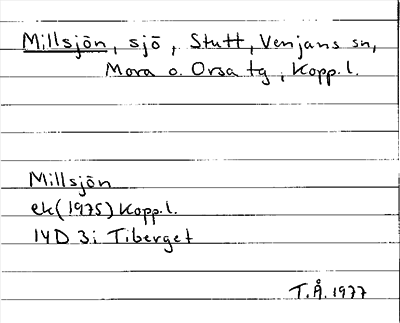 Millsjön, sjö, Stutt, Venjans sn,
Mora o. Orsa tg, Kopp. l.
Millsjön
ek (1975) Kopp. l.
14D 3i Tiberget
T.Å. 1977